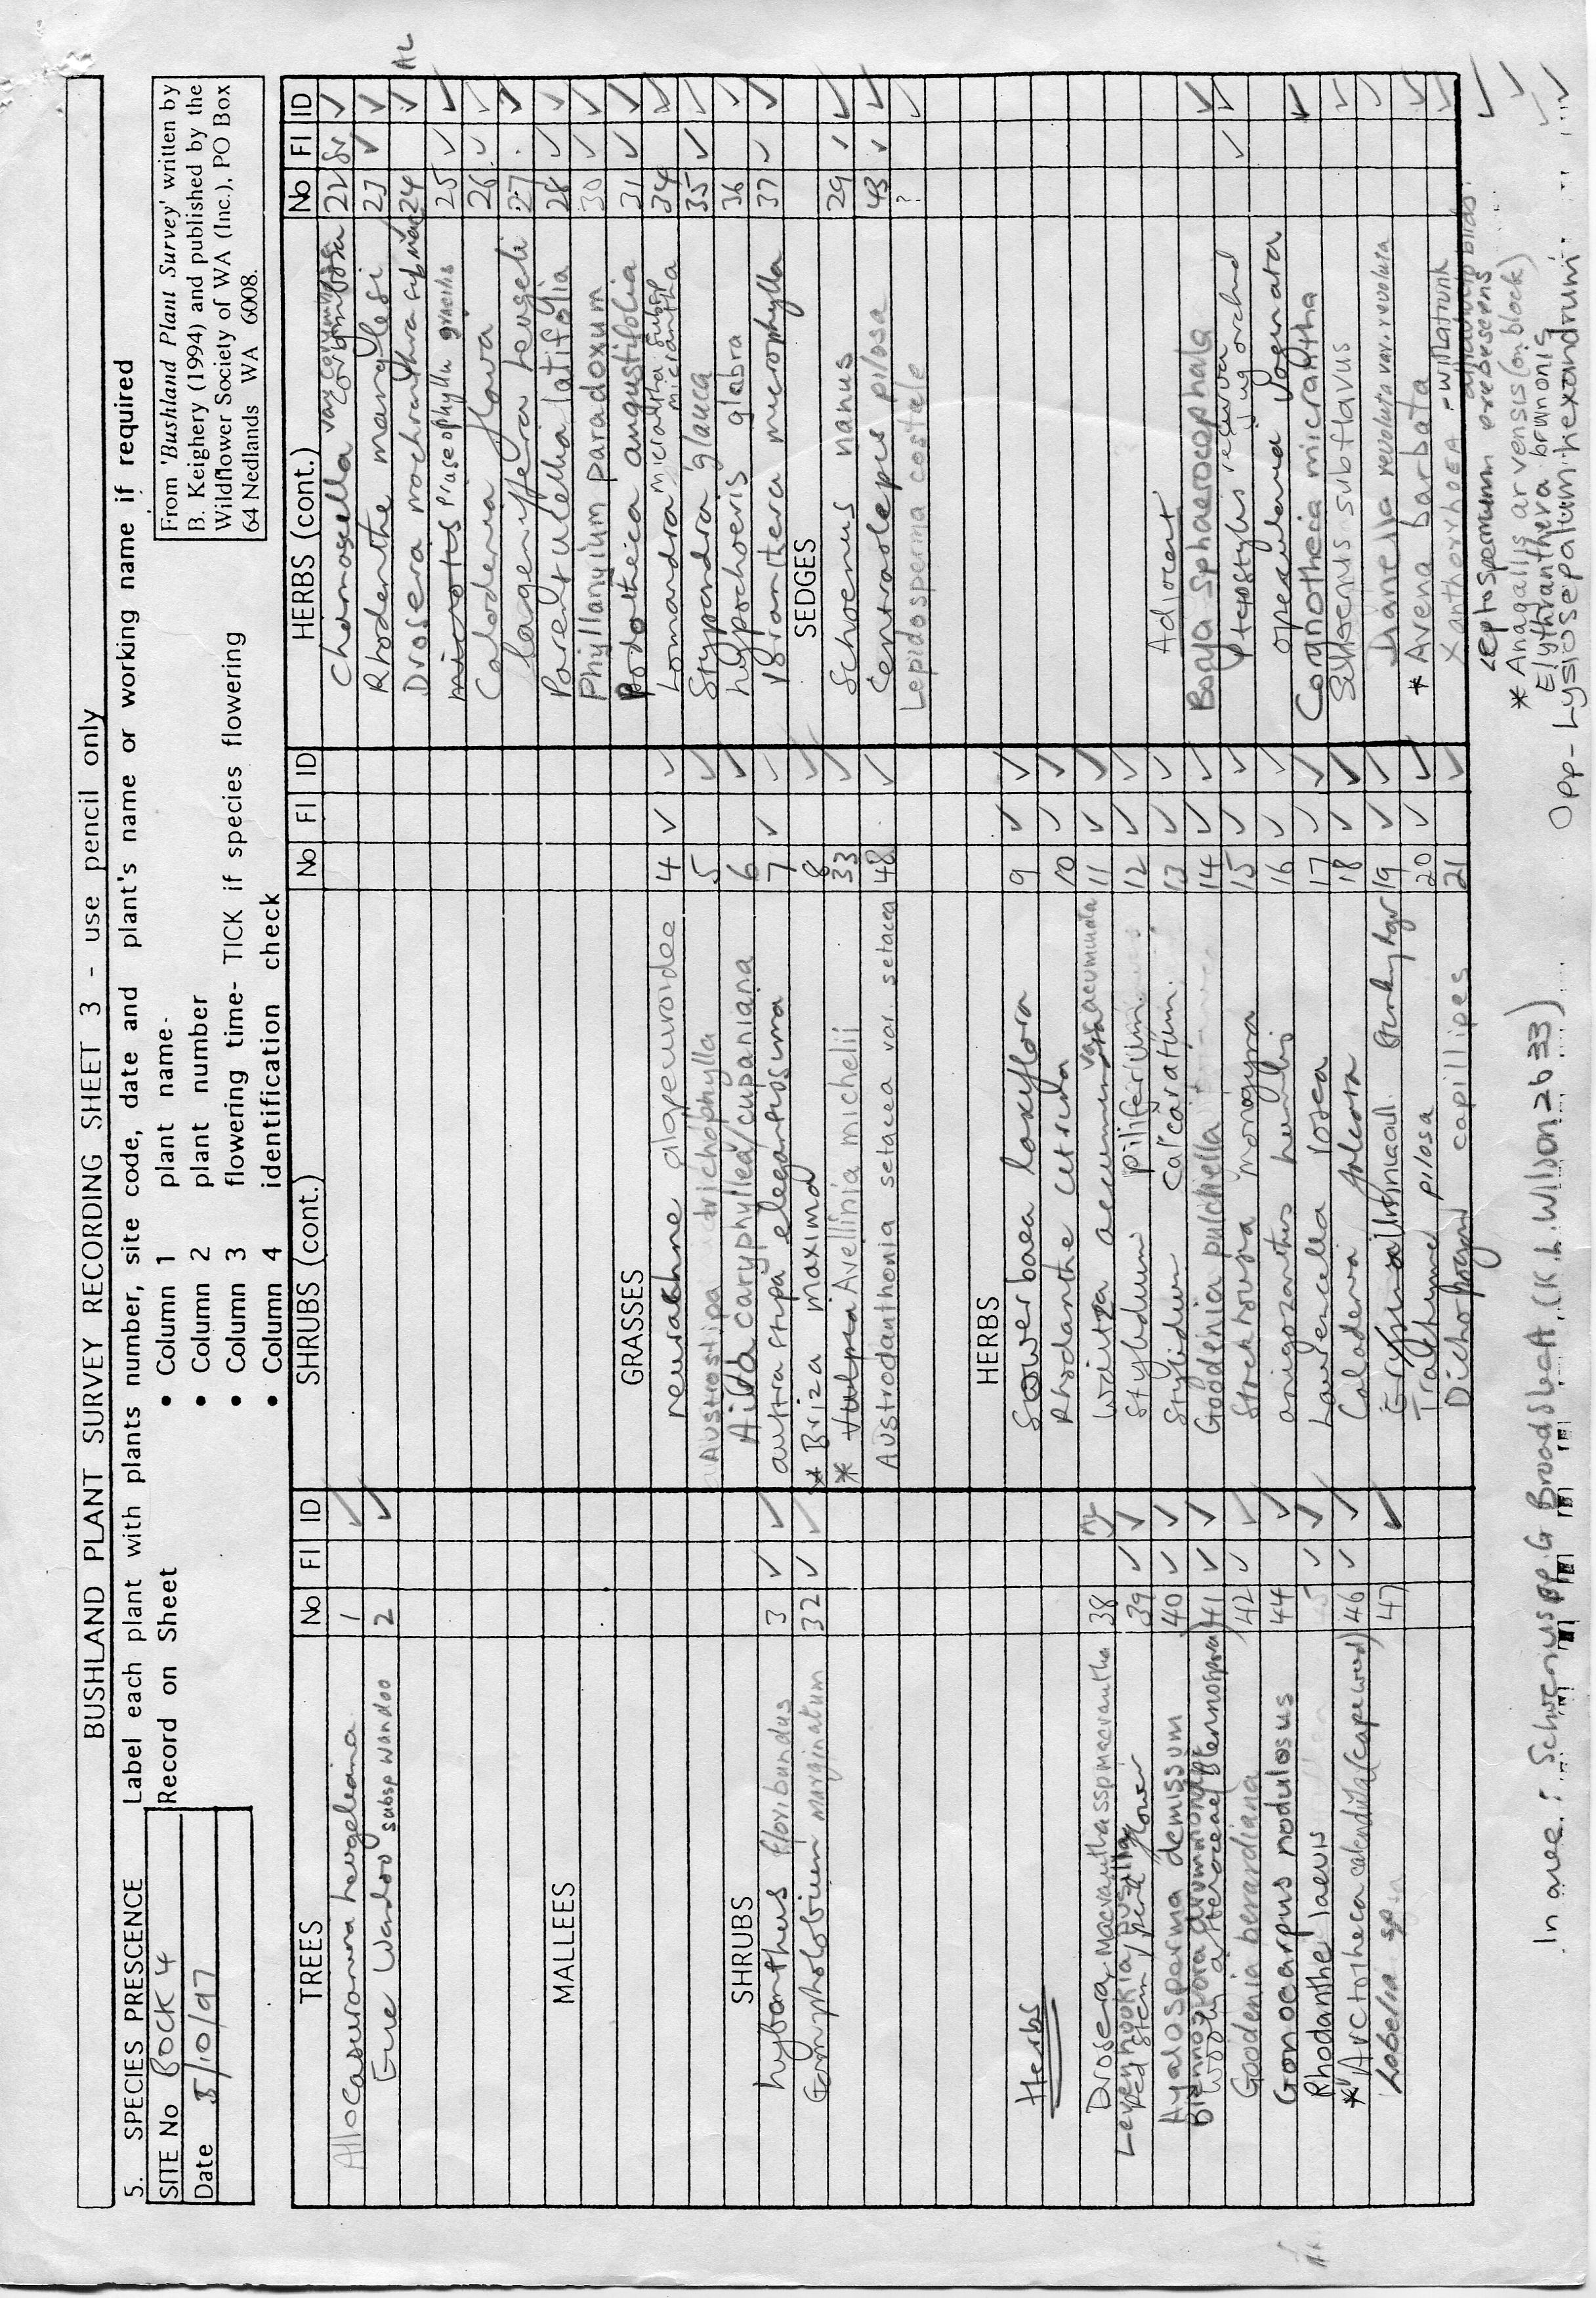 BUSHLAND PLANT SURVEY RECORDING SHEET 3 - use pencil only
5. SPECIES PRESCENCE
Label each plant with plants number, site code, date and plant's name or working name if required
SITE No BOCK 4
Date 5/10/97
Record on Sheet
• Column 1 plant name
• Column 2 plant number
• Column 3 flowering time- TICK if species flowering
• Column 4 identification check
From 'Bushland Plant Survey' written by
B. Keighery (1994) and published by the
Wildflower Society of WA (Inc.), PO Box
64 Nedlands WA 6008.
TREES No Fl ID
Allocasuarina huegeliana 1 ✓
Euc Wandoo subsp wandoo 2 ✓
MALLEES
SHRUBS
hybanthus floribundus 3 ✓ ✓
Gompholobium marginatum 32 ✓ ✓
Herbs
Drosera macrantha ssp macrantha 38
Levenhookia pusilla 39 ✓ ✓
red stem, pink flower
Hyalosperma demissum 40 ✓ ✓
Blennospora drummondii 41 ✓ ✓
woolly asteraceae (Blennospora)
Goodenia berardiana 42 ✓ ✓
Gonocarpus nodulosus 44 ✓
Rhodanthe laevis ✓ ✓
* Arctotheca calendula (cape weed) 46 ✓ ✓
Lobelia sp 47 ✓
SHRUBS (cont.) No Fl ID
GRASSES
neurachne alopeuroidee 4 ✓ ✓
Austrostipa trichophylla 5 ✓
Aira caryphyllea/cupaniana 6 ✓
austrostipa elegantissima 7 ✓ ✓
* Briza maxima 8 ✓
* Vulpia Avellinia michelii 33 ✓
Austrodanthonia setacea var. setacea 48 ✓
HERBS
Sowerbaea laxiflora 9 ✓ ✓
Rhodanthe citrina 10 ✓ ✓
Waitzia acuminata var acuminata 11 ✓ ✓
Stylidium piliferum 12 ✓ ✓
Stylidium calcaratum. 13 ✓ ✓
Goodenia pulchella 14 ✓ ✓
Stackhousia monogyna 15 ✓ ✓
anigozanthus humilis 16 ✓ ✓
Lawrencella rosea 17 ✓ ✓
Caladenia falcata 18 ✓ ✓
19 ✓ ✓
Trachymene pilosa 20 ✓ ✓
Dichopogon capillipes 21 ✓
HERBS (cont.) No Fl ID
Chamascilla var corymbosa corymbosa 22 ✓
Rhodenthe manglesi 23 ✓ ✓
Drosera 24 ✓ AL
microtis Prasophyllum gracile 25 ✓ ✓
Caladenia flava 26 ✓ ✓
Lageniffera huegeli 27 ✓
Parentucellia latifolia 28 ✓ ✓
Phyllanyium paradoxum 30 ✓ ✓
Podotheca angustifolia 31 ✓ ✓
Lomandra micrantha subsp micrantha 34 ✓
Stypandra glauca 35 ✓ ✓
hypochoeris glabra 36 ✓
Poranthera microphylla 37 ✓ ✓
SEDGES
Schoenus nanus 29 ✓ ✓
Centrolepis pilosa 43 ✓ ✓
Lepidosperma costale ? ✓
Adjacent
Borya sphaerocephala ✓
Pterostylis recurva ✓ ✓
jug orchid
opercularia vaginata
Comotheia micrantha ✓
Schoenus subflavus ✓
Dianella revoluta var. revoluta ✓
* Avena barbata ✓
Xanthorrhoea - with trunk ✓
Leptospermum erubescens ✓
* Anagallis arvensis (on block) ✓
Elythranthera brunonis ✓
Opp - Lysiosepalum hexandrum ✓
In area: Schoenus sp. G Broad Sheath (K.L. Wilson 2633)